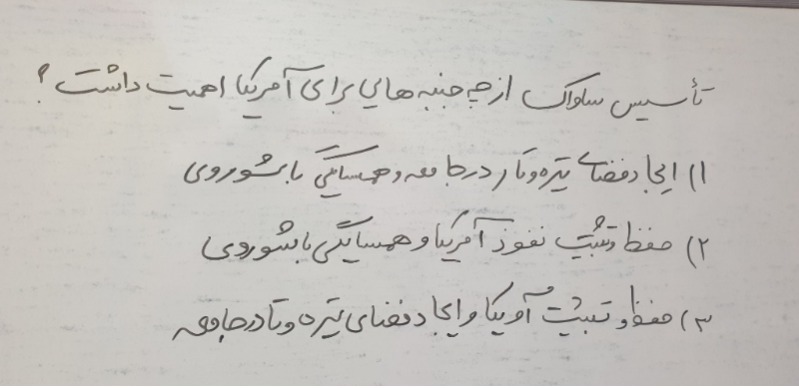 تأسیس ساواک از چه جنبه هایی برای آمریکا اهمیت داشت؟
۱) ایجاد فضای تیره و تار در جامعه و همسایگی با شوروی
۲) حفظ و تثبیت نفوذ آمریکا و همسایگی با شوروی
۳) حفظ و تثبیت آمریکا و ایجاد فضای تیره و تا در جامعه